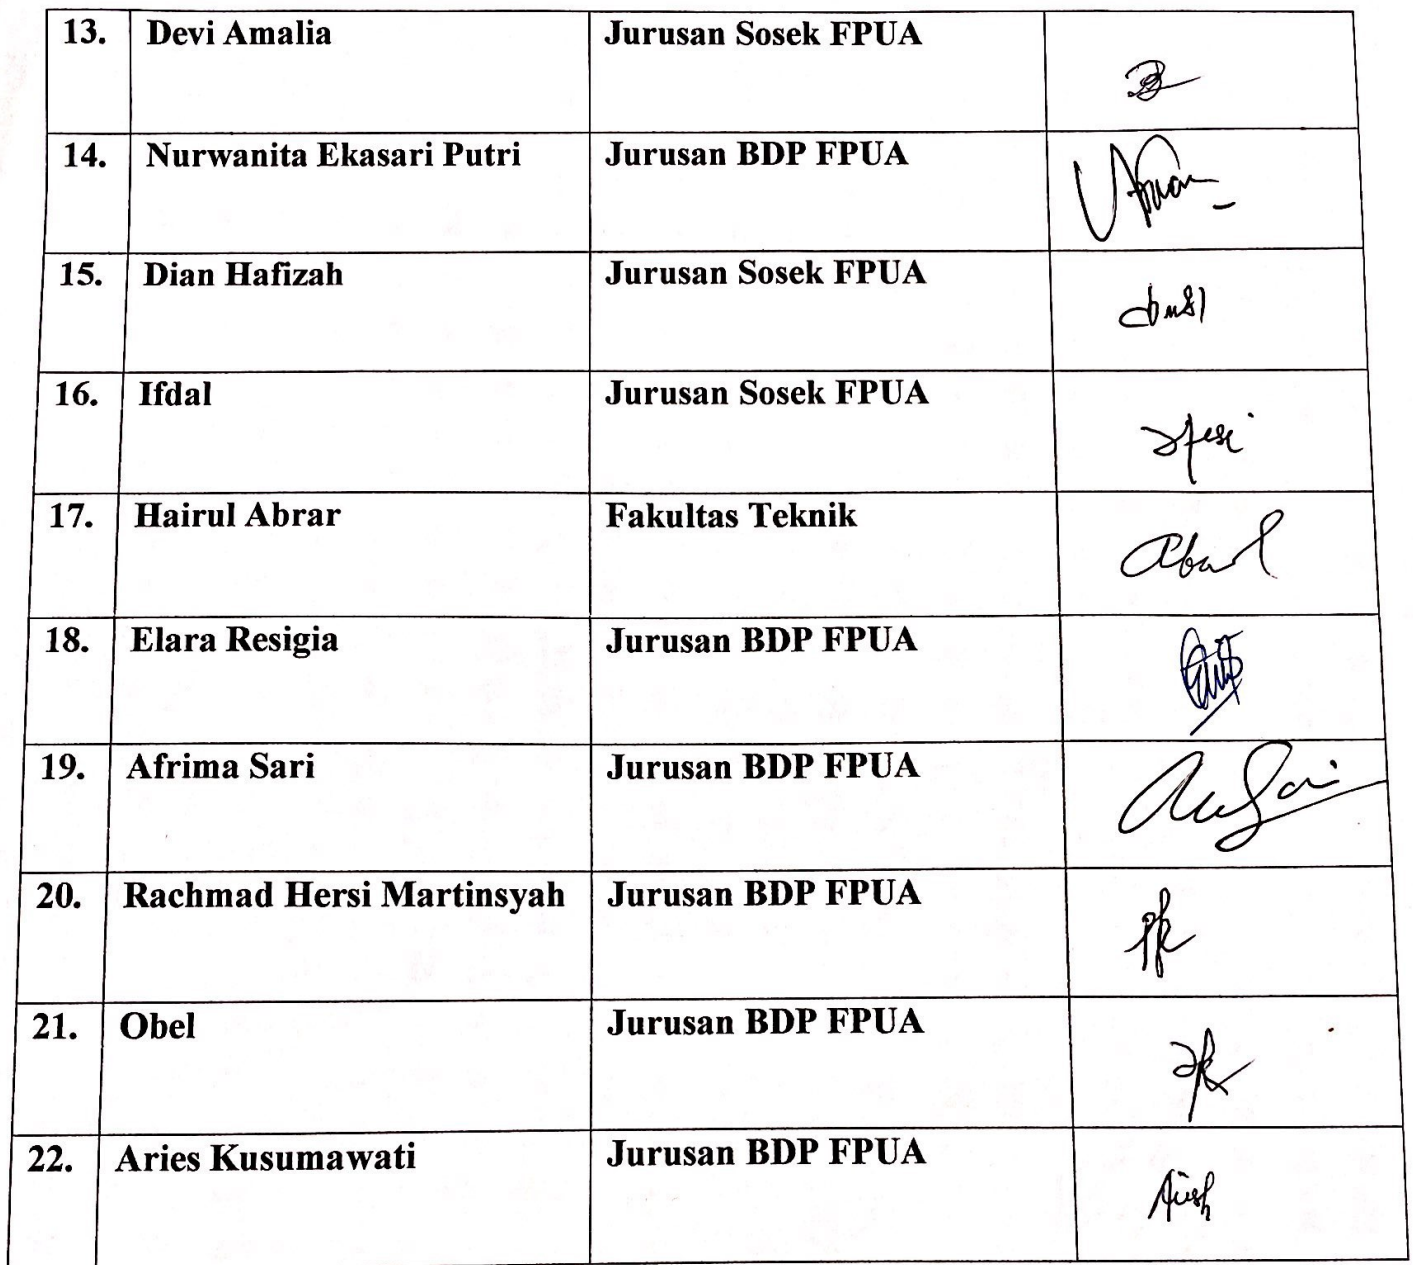 13. Devi Amalia Jurusan Sosek FPUA
14. Nurwanita Ekasari Putri Jurusan BDP FPUA
15. Dian Hafizah Jurusan Sosek FPUA
16. Ifdal Jurusan Sosek FPUA
17. Hairul Abrar Fakultas Teknik
18. Elara Resigia Jurusan BDP FPUA
19. Afrima Sari Jurusan BDP FPUA
20. Rachmad Hersi Martinsyah Jurusan BDP FPUA
21. Obel Jurusan BDP FPUA
22. Aries Kusumawati Jurusan BDP FPUA